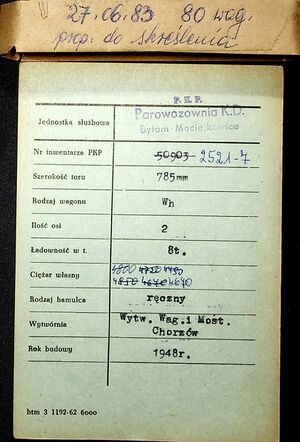 27.06.83 80 wag.
prop. do skreślenia
P.K.P.
Jednostka służbowa Parowozownia K.D.
Bytom-Maciejkowice
Nr inwentarza PKP 50903 2521-7
Szerokość toru 785mm
Rodzaj wagonu Wh
Ilość osi 2
Ładowność w t. 8t.
4800 4720 4490
Ciężar własny 4850 4670 4670
Rodzaj hamulca ręczny
Wytwórnia Wytw. Wag. i Most.
Chorzów
Rok budowy 1948r.
btm 3 1192-62 6000